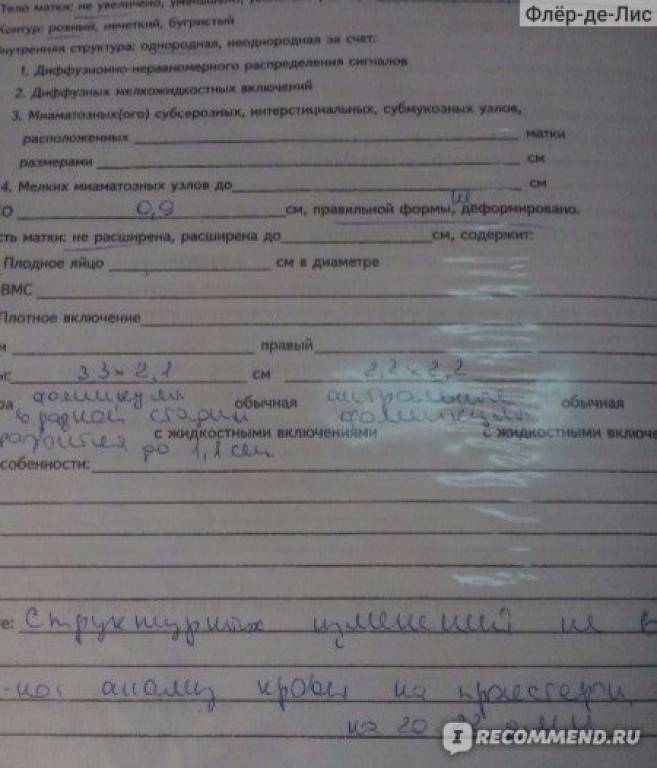 Флёр-де-Лис
Тело матки: не увеличено,
Контур: ровный, нечеткий, бугристый
нутренняя структура: однородная, неоднородная за счет:
1. Диффузионно-неравномерного распределения сигналов
2. Диффузных мелкожидкостных включений
3. Миаматозных(ого) субсерозных, интерстициальных, субмукозных узлов,
расположенных матки
размерами см
4. Мелких миаматозных узлов до см
О 0,9 см, правильной формы, не деформировано.
сть матки: не расширена, расширена до см, содержит:
Плодное яйцо см в диаметре
ВМС
Плотное включение
и правый
ы: 3,3 × 2,1 см 2,2 × 2,2
ра фолликулы обычная антральные обычная
в разной стадии фолликулы
развития с жидкостными включениями с жидкостными включе
до 1,1 см
собенности:
е: Структурных изменений не в
анализ крови на прогестерон
на 20
IRECOMMEND.RU